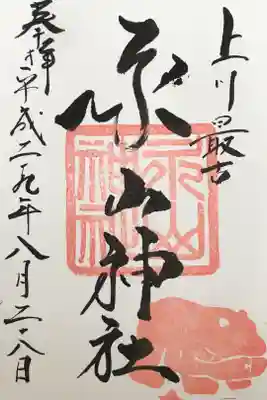 上川最古
永山神社
奉拝 平成二九年八月二十八日
永山神社